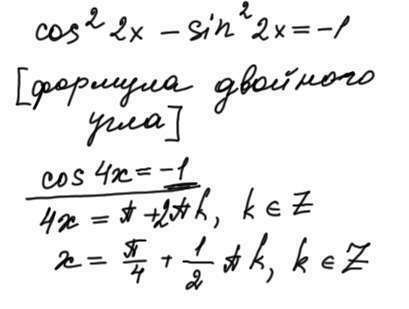 cos² 2x − sin² 2x = −1
[формула двойного
угла]
cos 4x = −1
4x = π + 2πk, k ∈ Z
x = π/4 + 1/2 πk, k ∈ Z